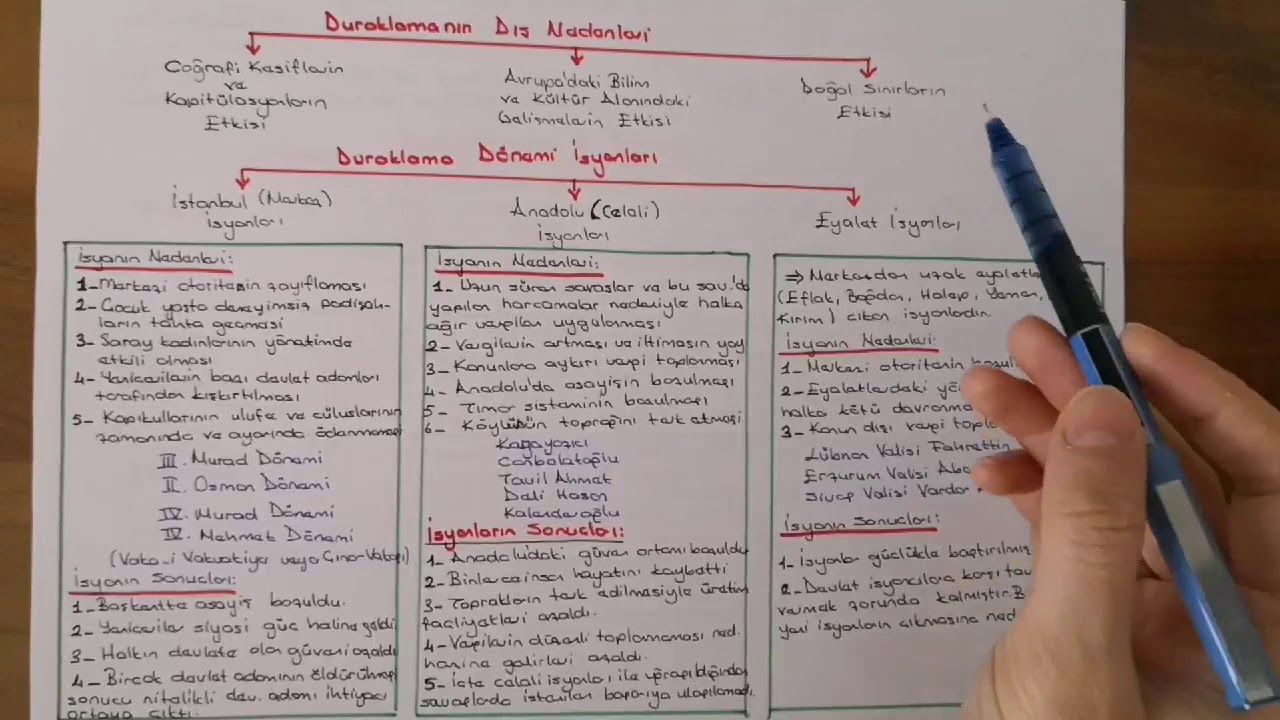 Duraklamanın Dış Nedenleri
Coğrafi Keşiflerin
ve
Kapitülasyonların
Etkisi
Avrupa'daki Bilim
ve Kültür Alanındaki
Çalışmaların Etkisi
Doğal Sınırların
Etkisi
Duraklama Dönemi İsyanları
İstanbul (Merkez)
isyanları
Anadolu (Celali)
isyanları
Eyalet İsyanları
İsyanın Nedenleri:
1- Merkezi otoritenin zayıflaması
2- Çocuk yaşta deneyimsiz padişah-
ların tahta geçmesi
3- Saray kadınlarının yönetimde
etkili olması
4- Yeniçerilerin bazı devlet adamları
tarafından kışkırtılması
5- Kapıkullarının ulufe ve cüluslarının
zamanında ve ayarında ödenmemesi
III. Murad Dönemi
II. Osman Dönemi
IV. Murad Dönemi
IV. Mehmet Dönemi
(Vaka-i Vakvakiye veya Çınar Vakası)
İsyanın Sonuçları:
1- Başkentte asayiş bozuldu.
2- Yeniçeriler siyasi güç haline geldi
3- Halkın devlete olan güveni azaldı
4- Birçok devlet adamının öldürülmesi
sonucu nitelikli dev. adamı ihtiyacı
ortaya çıktı.
İsyanın Nedenleri:
1- Uzun süren savaşlar ve bu sav.'da
yapılan harcamalar nedeniyle halka
ağır vergiler uygulaması
2- Vergilerin artması ve iltimasın yay
3- Kanunlara aykırı vergi toplanması
4- Anadolu'da asayişin bozulması
5- Tımar sisteminin bozulması
6- Köylünün toprağını terk etmesi
Karayazıcı
Canbolatoğlu
Tavil Ahmet
Deli Hasan
Kalenderoğlu
İsyanların Sonuçları:
1- Anadolu'daki güven ortamı bozuldu
2- Binlerce insan hayatını kaybetti
3- Toprakların terk edilmesiyle üretim
faaliyetleri azaldı.
4- Vergilerin düzenli toplanmaması ned.
hazine gelirleri azaldı.
5- İçte celali isyanları ile uğraşıldığından
savaşlarda istenilen başarıya ulaşılamadı.
⇒ Merkezden uzak eyaletle
(Eflak, Boğdan, Halep, Yemen,
Kırım) çıkan isyanlardır.
İsyanın Nedenleri:
1- Merkezi otoritenin bozul
2- Eyaletlerdeki yö
halka kötü davranma
3- Kanun dışı vergi topla
Lübnan Valisi Fahrettin
Erzurum Valisi Aba
Sivas Valisi Vardar
İsyanın Sonuçları:
1- İsyanlar güçlükle bastırılmış
2- Devlet isyancılara karşı tav
vermek zorunda kalmıştır. B
yeni isyanların çıkmasına ned